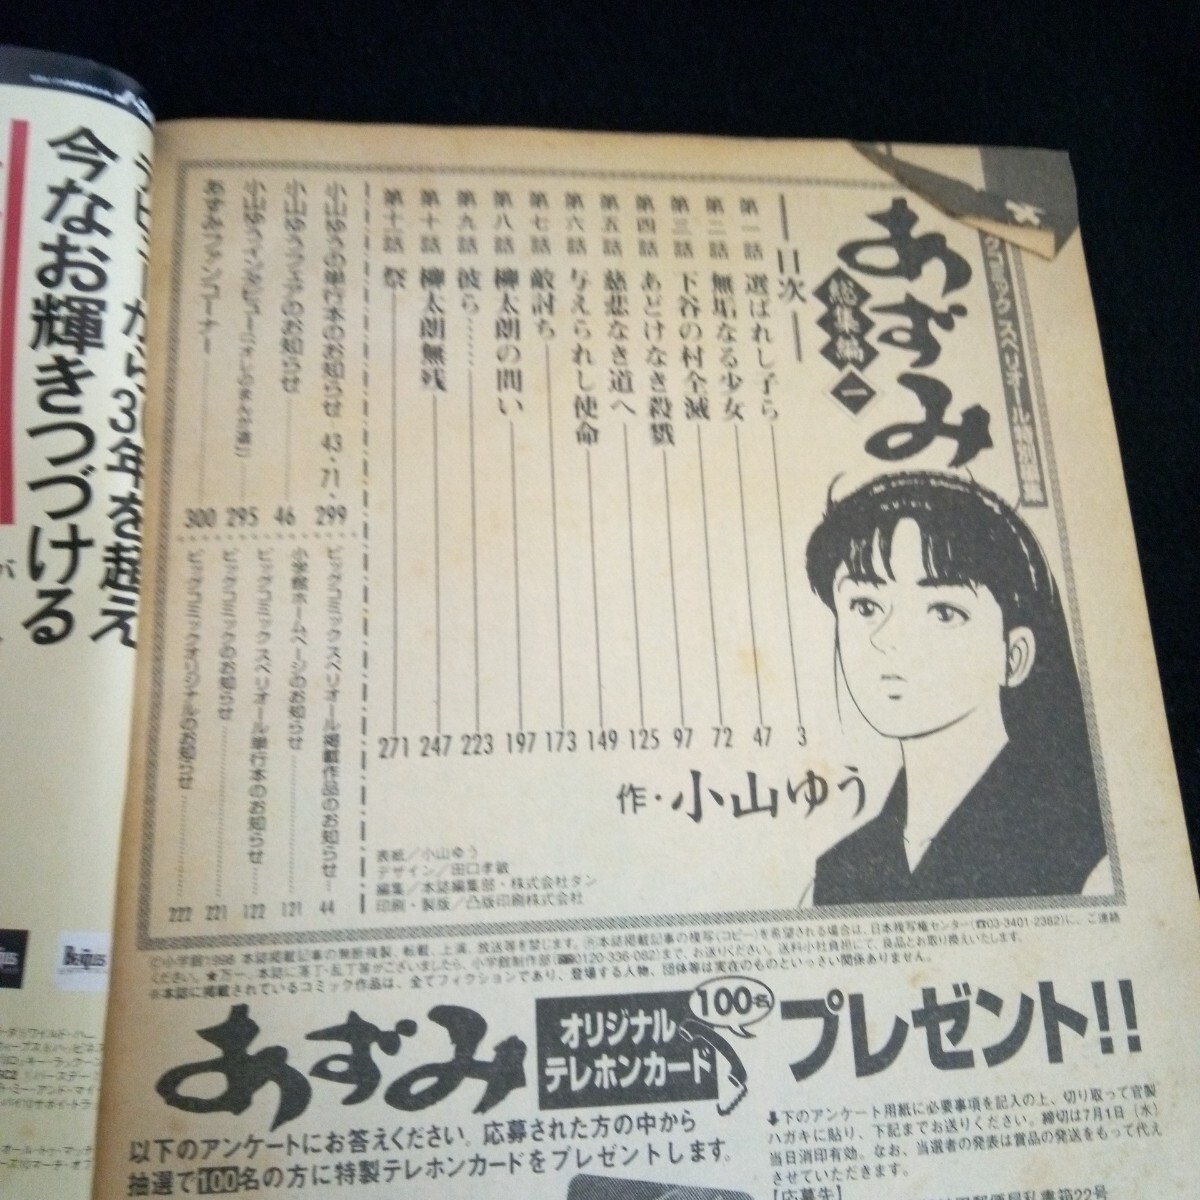 あずみ
総集編 一
目次
第一話 選ばれし子ら 3
第二話 無垢なる少女 47
第三話 下谷の村全滅 72
第四話 あどけなき殺戮 97
第五話 慈悲なき道へ 125
第六話 与えられし使命 149
第七話 敵討ち 173
第八話 柳太朗の問い 197
第九話 彼ら…… 223
第十話 柳太朗無残 247
第十一話 祭 271
作・小山ゆう
小山ゆうの単行本のお知らせ 43・71・299
小山ゆうフェアのお知らせ 46
小山ゆうインタビュー 295
あずみファンコーナー 300
ビッグコミックスペリオール掲載作品のお知らせ 44
小学館ホームページのお知らせ 121
ビッグコミックスペリオール単行本のお知らせ 122
ビッグコミックのお知らせ 221
ビッグコミックオリジナルのお知らせ 222
表紙／小山ゆう
デザイン／田口孝敏
編集／本誌編集部・株式会社タン
印刷・製版／凸版印刷株式会社
©小学館1998 本誌掲載記事の無断複製、転載、上演、放送等を禁じます。 本誌掲載記事の複写（コピー）を希望される場合は、日本複写権センター（☎03-3401-2382）に、ご連絡
ください。★万一、本誌に落丁・乱丁等がございましたら、小学館制作部（0120-336-082）まで、お送りください。送料小社負担にて、良品とお取り換えいたします。
※本誌に掲載されているコミック作品は、全てフィクションであり、登場する人物、団体等は実在のものといっさい関係ありません。
あずみ
オリジナル
テレホンカード
100名
プレゼント!!
以下のアンケートにお答えください。応募された方の中から
抽選で100名の方に特製テレホンカードをプレゼントします。
⬇下のアンケート用紙に必要事項を記入の上、切り取って官製
ハガキに貼り、下記までお送りください。締切は7月1日（水）
当日消印有効。なお、当選者の発表は賞品の発送をもって代え
させていただきます。
【応募先】
今なお輝きつづける